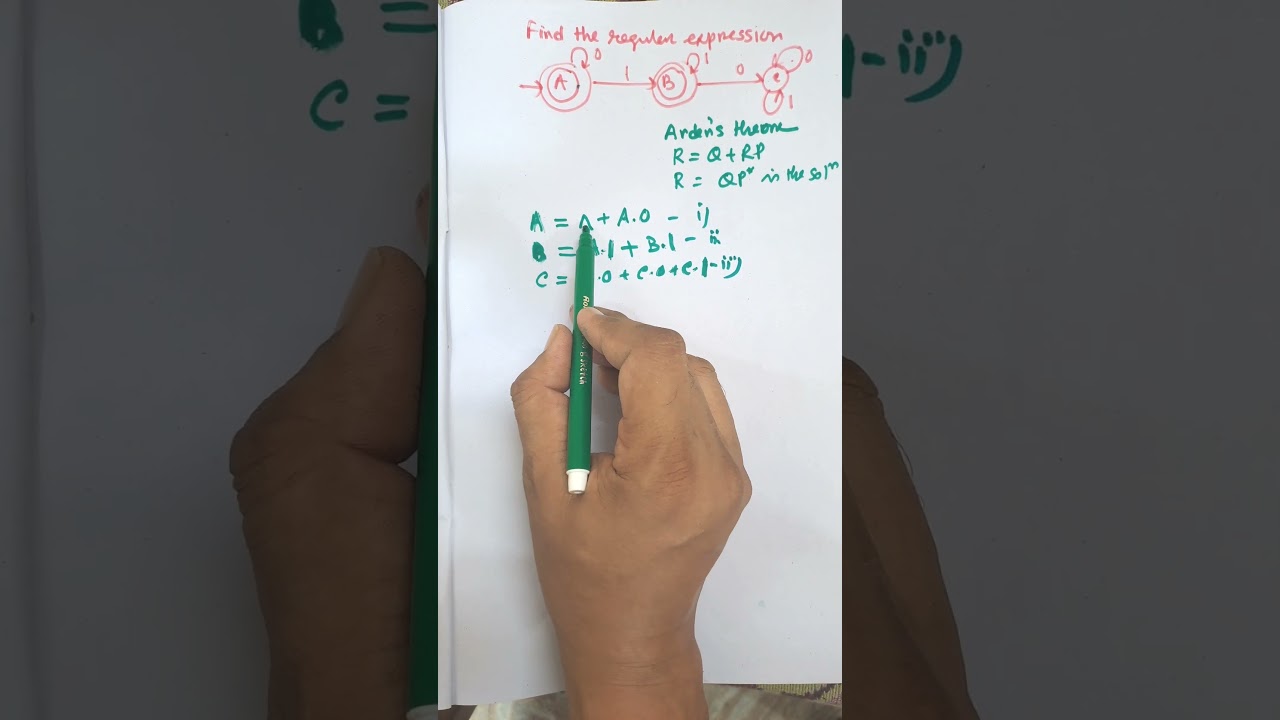 Find the regular expression
0 1 0
A 1 B 0 C
1
Arden's theore
R = Q + RP
R = QP* is the solⁿ
A = ∧ + A.0 - i)
B = .1 + B.1 - ii
C = .0 + C.0 + C.1 - iii)
B =
C =
1 - iii)